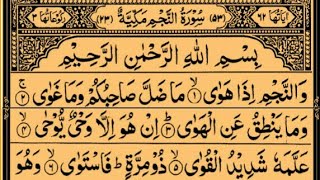 اٰیَاتُهَا ٦٢ (٥٣) سُوْرَةُ النَّجْمِ مَكِّيَّةٌ (٢٣) رُكُوْعَاتُهَا ٣
بِسْمِ اللّٰهِ الرَّحْمٰنِ الرَّحِيْمِ
وَالنَّجْمِ اِذَا هَوٰى ۙ‏ ١ مَا ضَلَّ صَاحِبُكُمْ وَمَا غَوٰى ۚ‏ ٢
وَمَا يَنْطِقُ عَنِ الْهَوٰى ؕ‏ ٣ اِنْ هُوَ اِلَّا وَحْىٌ يُّوْحٰى ۙ‏ ٤
عَلَّمَهٗ شَدِيْدُ الْقُوٰى ۙ‏ ٥ ذُوْ مِرَّةٍ ؕ فَاسْتَوٰى ۙ‏ ٦ وَهُوَ